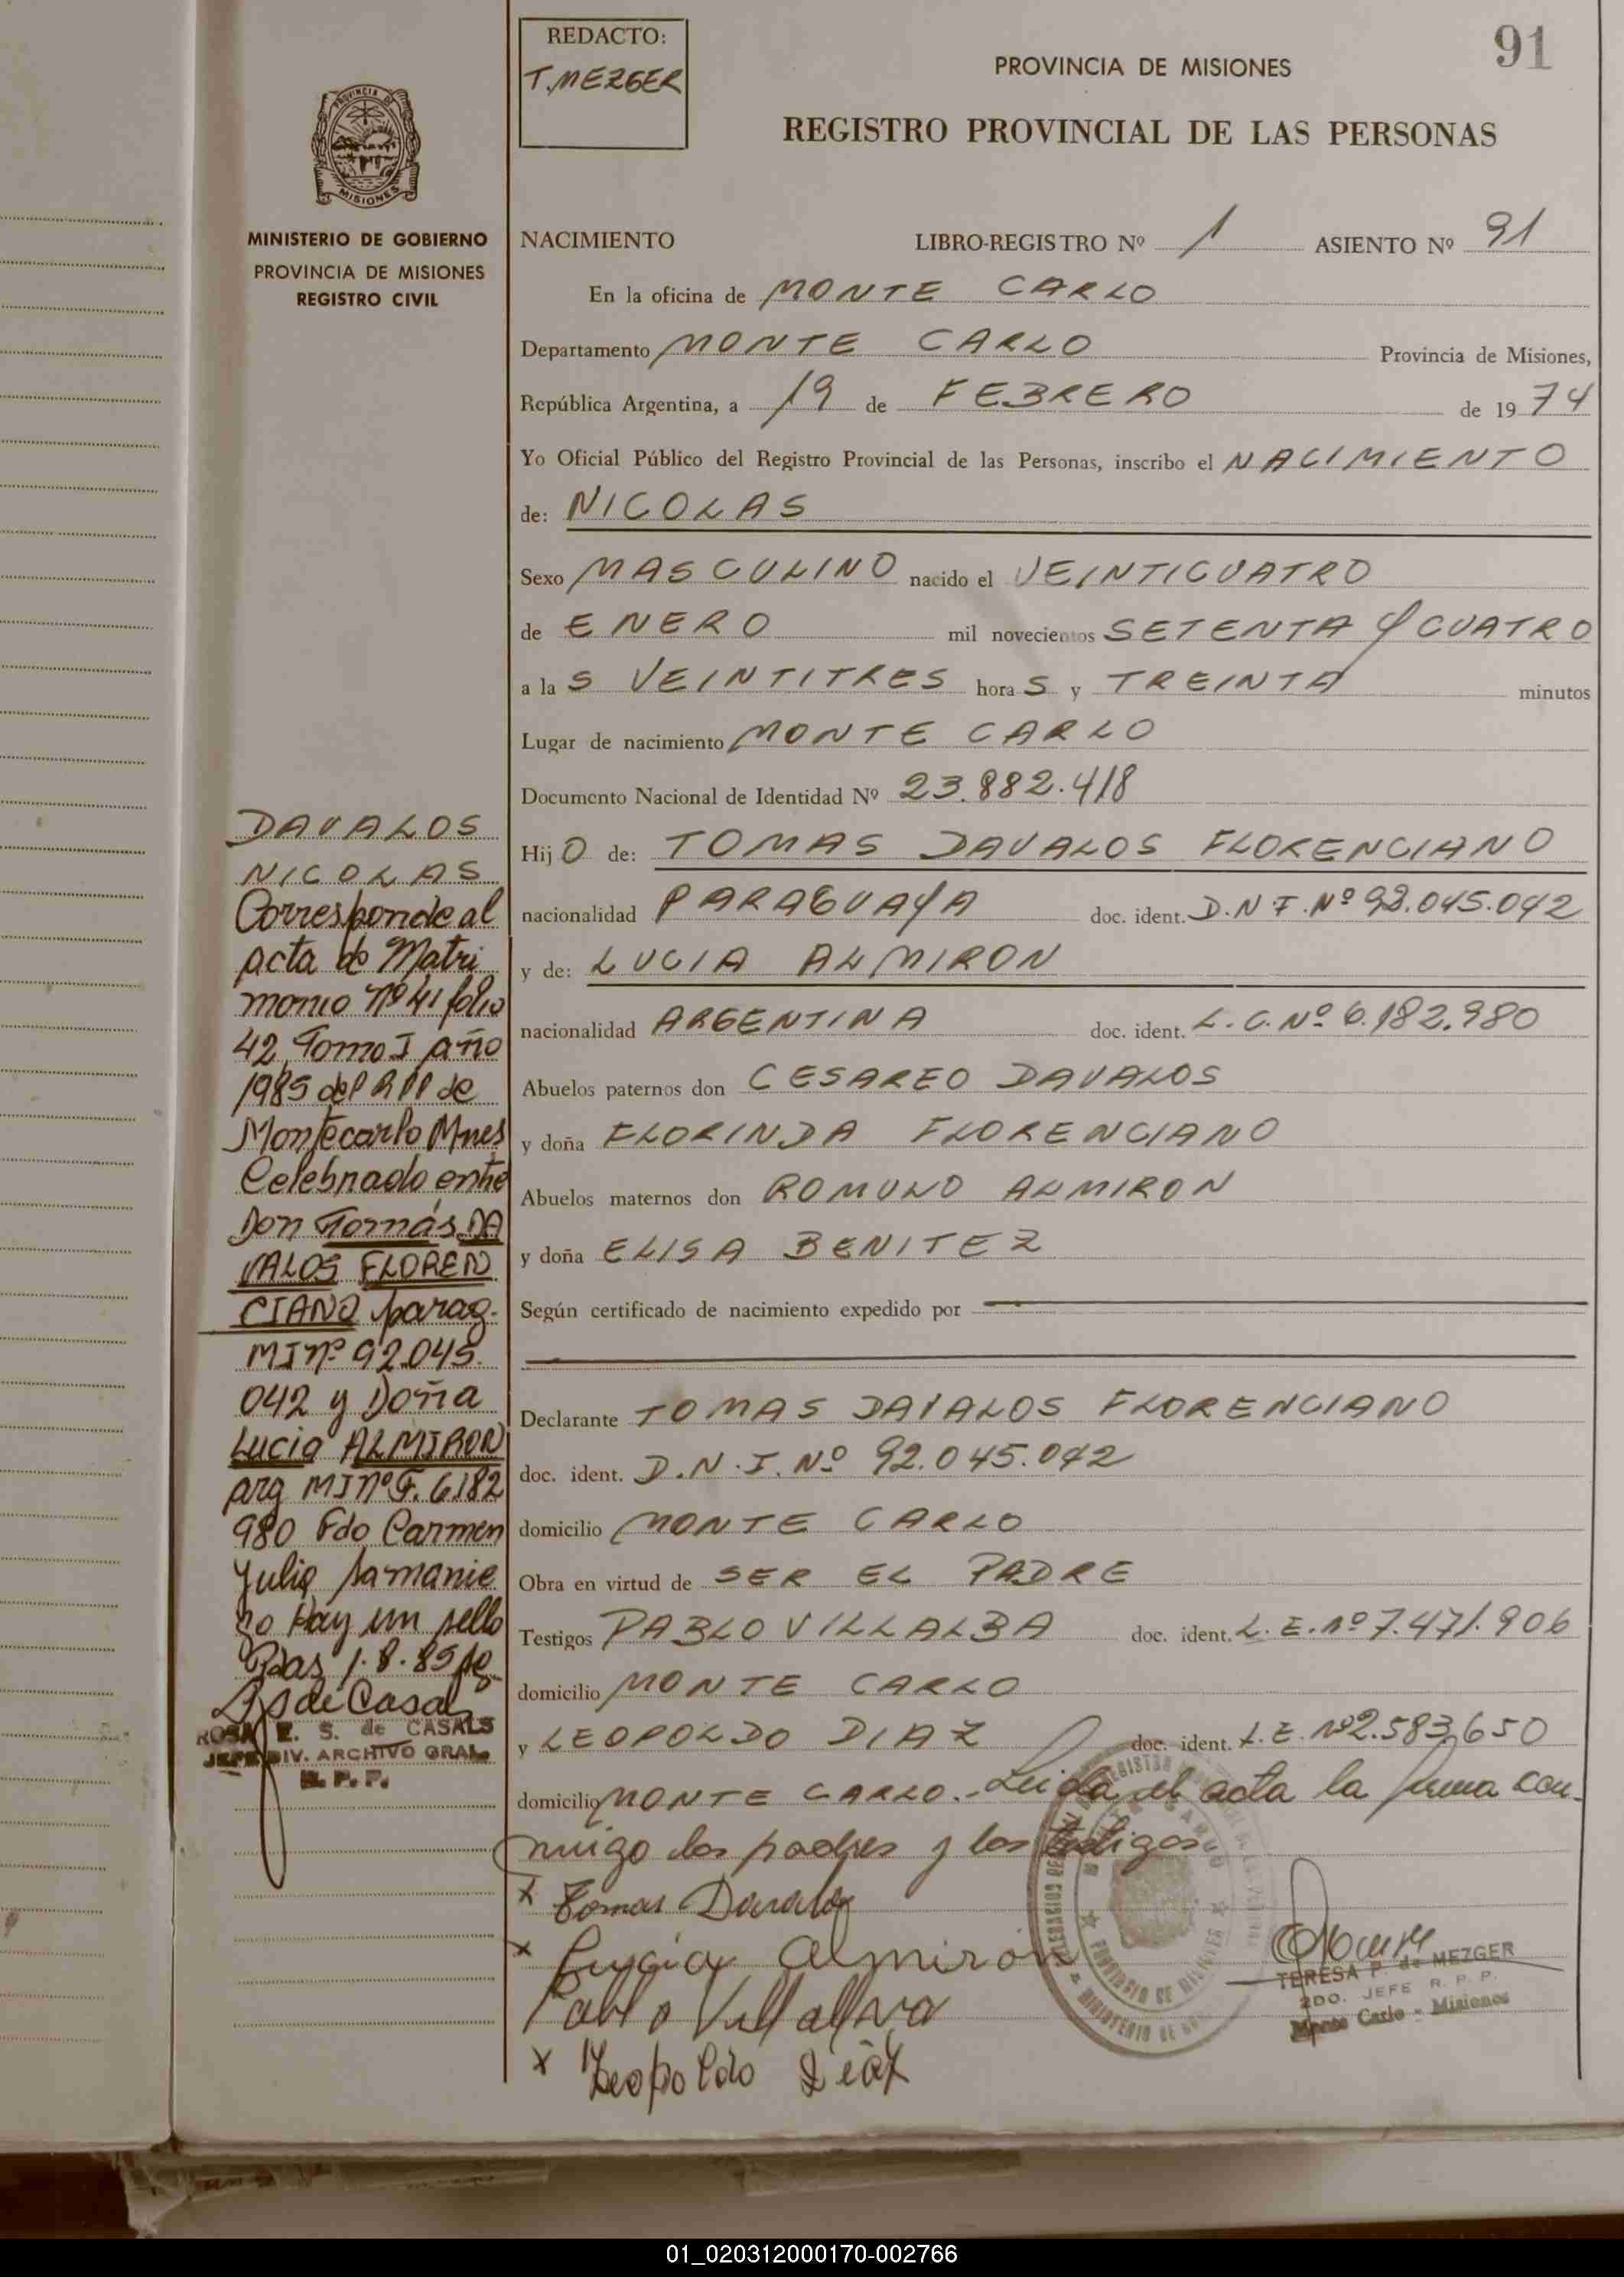 91
REDACTO:
T. MEZGER
PROVINCIA DE MISIONES
REGISTRO PROVINCIAL DE LAS PERSONAS
PROVINCIA DE
MISIONES
MINISTERIO DE GOBIERNO
PROVINCIA DE MISIONES
REGISTRO CIVIL
NACIMIENTO LIBRO-REGISTRO Nº 1 ASIENTO Nº 91
En la oficina de MONTE CARLO
Departamento MONTE CARLO Provincia de Misiones,
República Argentina, a 19 de FEBRERO de 1974
Yo Oficial Público del Registro Provincial de las Personas, inscribo el NACIMIENTO
de: NICOLAS
Sexo MASCULINO nacido el VEINTICUATRO
de ENERO mil novecientos SETENTA Y CUATRO
a la S VEINTITRES hora S y TREINTA minutos
Lugar de nacimiento MONTE CARLO
Documento Nacional de Identidad Nº 23.882.418
Hij O de: TOMAS DAVALOS FLORENCIANO
nacionalidad PARAGUAYA doc. ident. D.N.I. Nº 92.045.042
y de: LUCIA ALMIRON
nacionalidad ARGENTINA doc. ident. L.C. Nº 6.182.980
Abuelos paternos don CESAREO DAVALOS
y doña FLORINDA FLORENCIANO
Abuelos maternos don ROMULO ALMIRON
y doña ELISA BENITEZ
Según certificado de nacimiento expedido por
Declarante TOMAS DAVALOS FLORENCIANO
doc. ident. D.N.I. Nº 92.045.042
domicilio MONTE CARLO
Obra en virtud de SER EL PADRE
Testigos PABLO VILLALBA doc. ident. L.E. Nº 7.471.906
domicilio MONTE CARLO
y LEOPOLDO DIAZ doc. ident. L.E. Nº 2.583.650
domicilio MONTE CARLO.- Leida el acta la firma con-
migo los padres y los testigos
x Tomas Davalos
x Lucia Almirón
Pablo Villalva
x Leopoldo Diaz
TERESA P. de MEZGER
2DO. JEFE R. P. P.
Monte Carlo - Misiones
DAVALOS
NICOLAS
Corresponde al
acta de Matri
monio Nº 41 folio
42 Tomo I año
1985 del RPP de
Montecarlo Mnes
Celebrado entre
Don Tomás DA
VALOS FLOREN
CIANO parag.
MI nº 92.045.
042 y Doña
Lucia ALMIRON
arg MI nº F. 6.182
980 Fdo Carmen
Julia Samanie
go Hay un sello
Pdas 1.8.85
ROSA E. S. de CASALS
JEFE DIV. ARCHIVO GRAL.
R. P. P.
01_020312000170-002766